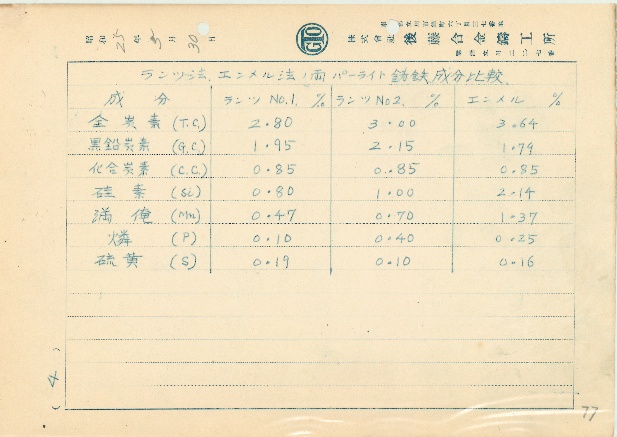 昭和25年5月30日
GTO
株式會社 後藤合金鑄工所
ランツ法、エンメル法ノ両パーライト鋳鉄成分比較
成分 ランツ No.1. % ランツ No2. % エンメル %
全炭素 (T.C.) 2.80 3.00 3.64
黒鉛炭素 (G.C.) 1.95 2.15 1.79
化合炭素 (C.C.) 0.85 0.85 0.85
硅素 (Si) 0.80 1.00 2.14
満俺 (Mn) 0.47 0.70 1.37
燐 (P) 0.10 0.40 0.25
硫黄 (S) 0.19 0.10 0.16
(4)
77